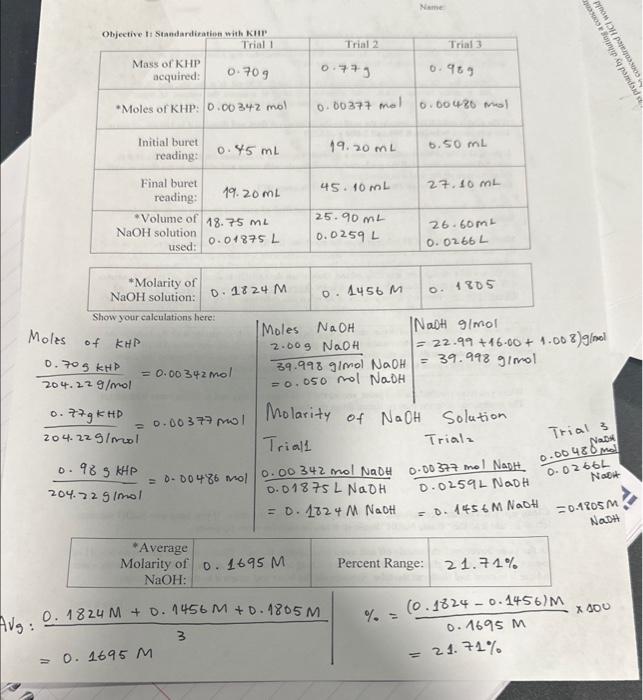 Name:
prepared by diluting a concent
concentrated HCl would
Objective 1: Standardization with KHP
Trial 1 Trial 2 Trial 3
Mass of KHP acquired: 0.70g 0.77g 0.98g
*Moles of KHP: 0.00342 mol 0.00377 mol 0.00480 mol
Initial buret reading: 0.45 mL 19.20 mL 0.50 mL
Final buret reading: 19.20 mL 45.10 mL 27.10 mL
*Volume of NaOH solution used: 18.75 mL 0.01875 L 25.90 mL 0.0259 L 26.60 mL 0.0266 L
*Molarity of NaOH solution: 0.1824 M 0.1456 M 0.1805
Show your calculations here:
Moles of KHP
0.70g KHP
204.22 g/mol
= 0.00342 mol
0.77g KHP
204.22 g/mol
= 0.00377 mol
0.98g KHP
204.22 g/mol
= 0.00480 mol
Moles NaOH
2.00g NaOH
39.998 g/mol NaOH
= 0.050 mol NaOH
NaOH g/mol
= 22.99 + 16.00 + 1.008) g/mol
= 39.998 g/mol
Molarity of NaOH Solution
Trial1
0.00342 mol NaOH
0.01875 L NaOH
= 0.1824 M NaOH
Trial2
0.00377 mol NaOH
0.0259L NaOH
= 0.1456M NaOH
Trial 3
0.00480 mol NaOH
0.0266L NaOH
= 0.1805M NaOH
*Average Molarity of NaOH: 0.1695 M Percent Range: 21.71%
Avg: 0.1824M + 0.1456M + 0.1805M
3
= 0.1695 M
% = (0.1824 - 0.1456)M x 100
0.1695 M
= 21.71%